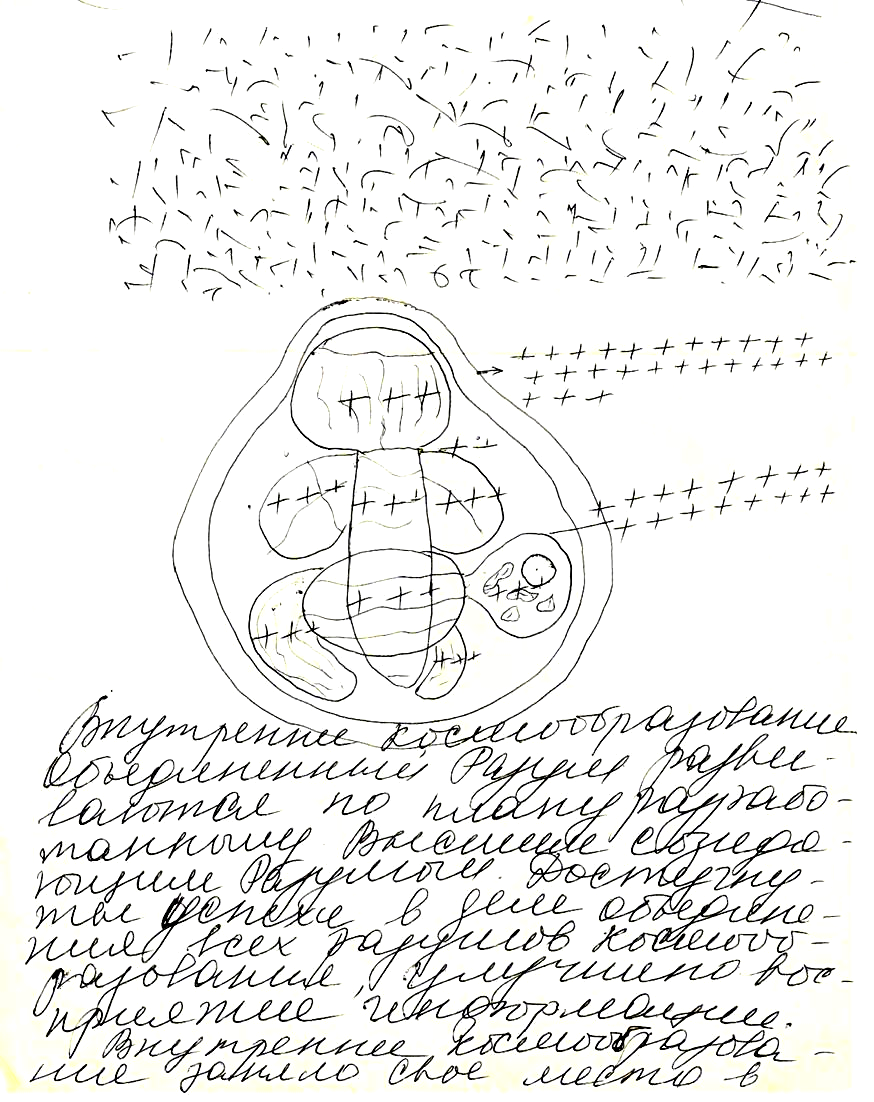 Внутренне космообразование
Объединенный Разум разви-
ваются по плану разрабо-
танному Высшим созида-
ющим Разумом. Достигну-
ты успехи в деле объедине-
ния всех разумов космооб-
разования, улучшено вос-
приятие информации.
Внутренне космообразова-
ние заняло свое место в